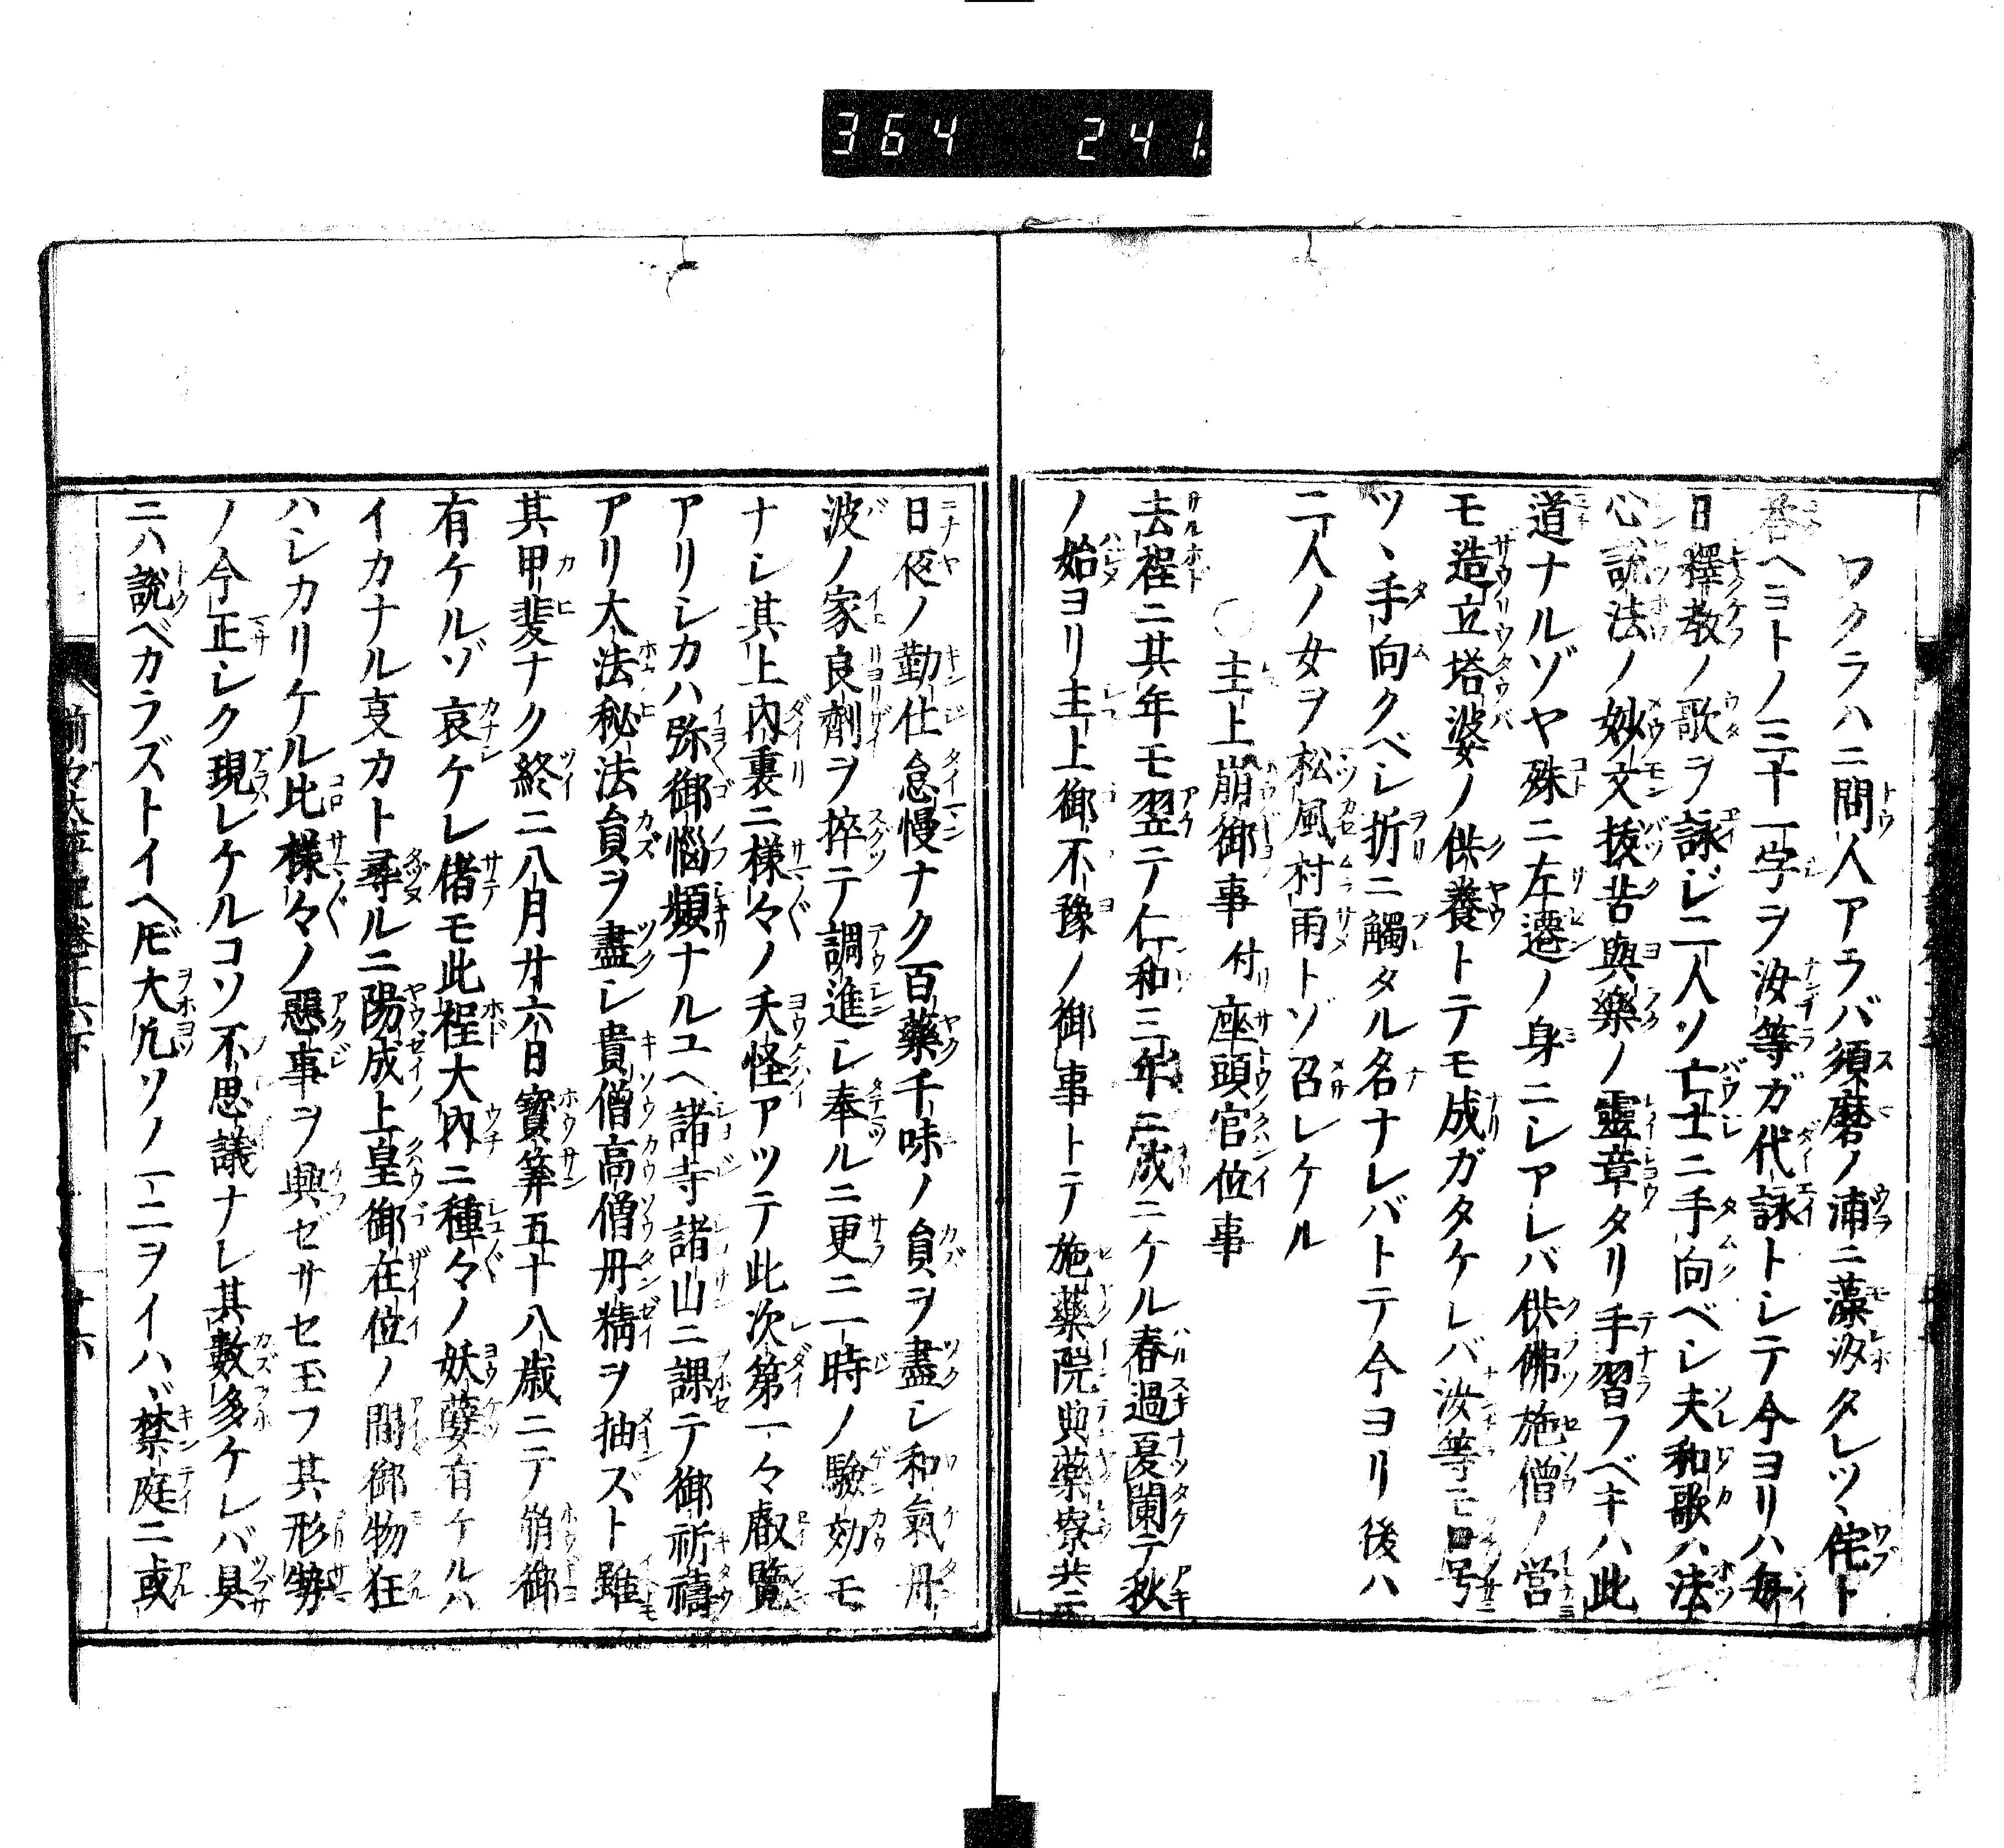 364 241.
ワクラハニ問人アラバ須磨ノ浦ニ藻汐タレツヽ侘ト
答ヘヨトノ三十一字ヲ汝等ガ代詠トシテ今ヨリハ毎
日釋教ノ歌ヲ詠ジ二人ソ亡士ニ手向ベシ夫和歌ハ法
心説法ノ妙文抜苦與樂ノ靈章タリ手習フベキハ此
道ナルゾヤ殊ニ左遷ノ身ニシアレバ供佛施僧ノ営
モ造立塔婆ノ供養トテモ成ガタケレバ汝等モ号
ツヽ手向クベシ折ニ觸タル名ナレバトテ今ヨリ後ハ
二人ノ女ヲ松風村雨トゾ召シケル
○主上崩御事付座頭官位事
去程ニ其年モ翌テ仁和三年ニ成ニケル春過夏闌テ秋
ノ始ヨリ主上御不豫ノ御事トテ施藥院典藥寮共ニ
日夜ノ勤仕怠慢ナク百藥千味ノ員ヲ盡シ和氣丹
波ノ家良劑ヲ捽テ調進シ奉ルニ更ニ一時ノ驗効モ
ナシ其上内裏ニ様々ノ夭怪アツテ此次第一々叡覽
アリシカハ弥御惱頻ナルユヘ諸寺諸山ニ課テ御祈禱
アリ大法秘法員ヲ盡シ貴僧高僧丹精ヲ抽ズト雖
其甲斐ナク終ニ八月廿六日寳筭五十八歳ニテ崩御
有ケルゾ哀ケレ偖モ此程大内ニ種々ノ妖孽有ケルハ
イカナル叓カト尋ルニ陽成上皇御在位ノ間御物狂
ハシカリケル比様々ノ惡事ヲ興ゼサセ玉フ其形勢
ノ今正シク現レケルコソ不思議ナレ其數多ケレバ具
ニハ説ベカラズトイヘ𪜈大凢ソノ一二ヲイハヾ禁庭ニ或
前々太平記巻十六下
十六